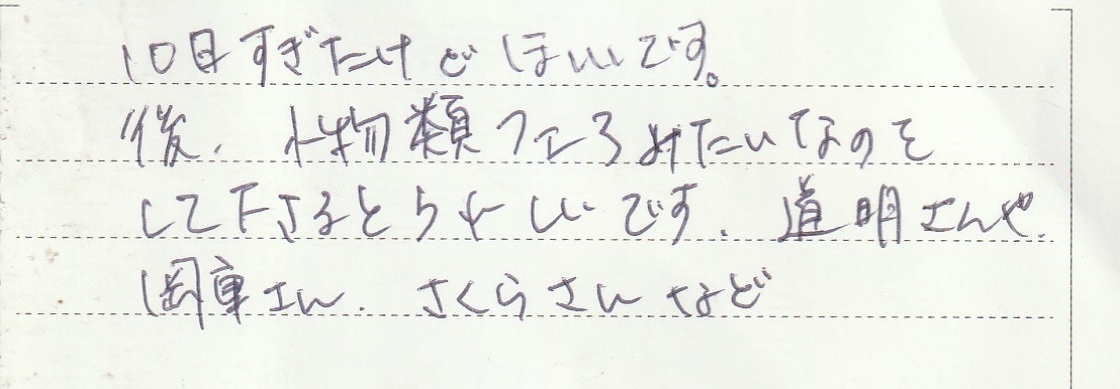 10日すぎたけどほしいです。
後、小物類フェろみたいなのを
して下さるとうれしいです、道明さんや、
岡重さん、さくらさんなど